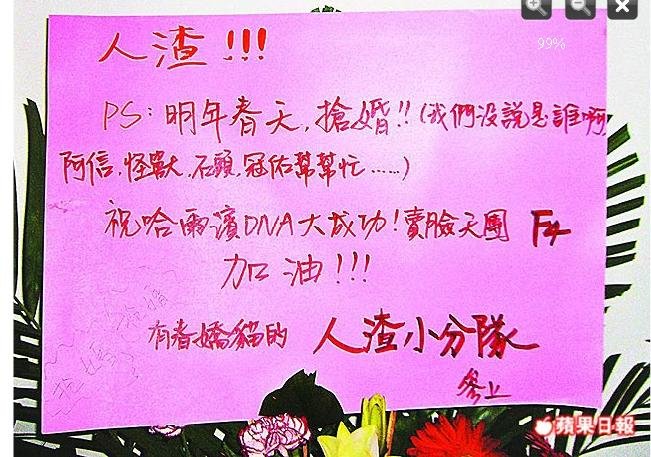 99%
人渣!!!
PS:明年春天,搶婚!!(我們沒說是誰啊,
阿信,怪獸,石頭,冠佑幫幫忙……)
祝哈雨濱DNA大成功!賣臉天團 F4
加油!!!
有春嬌貓的 人渣小分隊
參上
蘋果日報